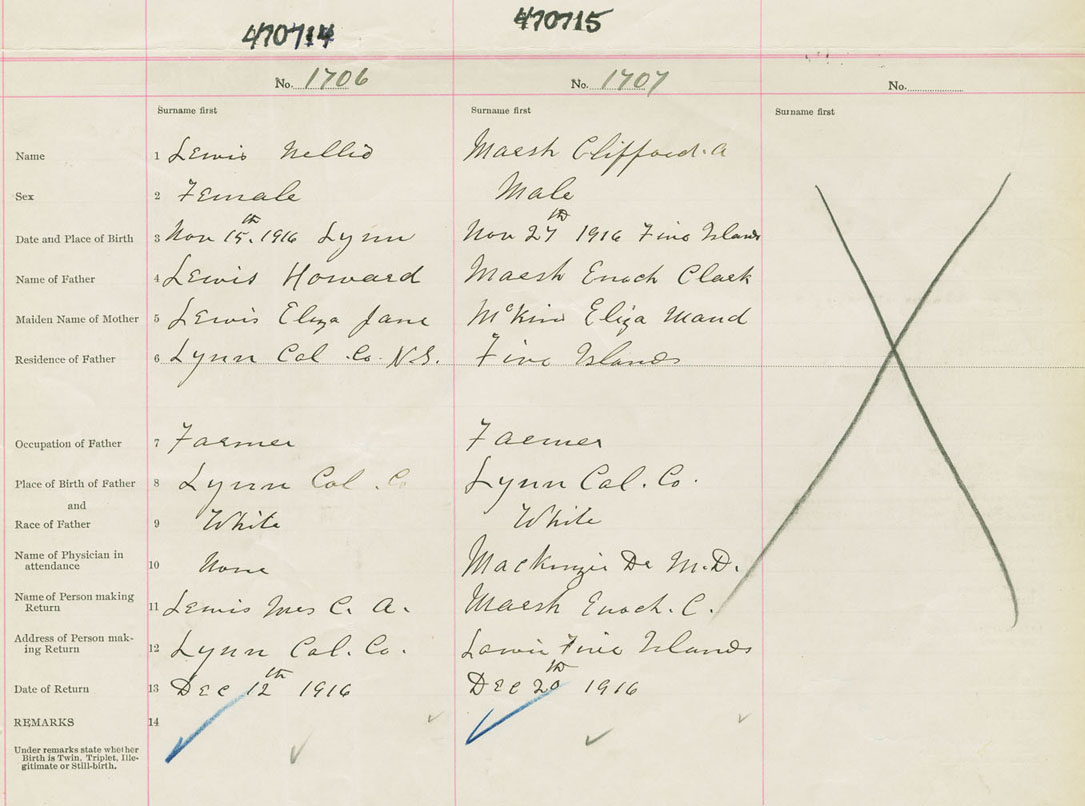 470714 470715
No. 1706 No. 1707 No.
Surname first Surname first Surname first
Name 1 Lewis Nellie Marsh Clifford. A
Sex 2 Female Male
Date and Place of Birth 3 Nov 15th. 1916 Lynn Nov 27th 1916 Five Islands
Name of Father 4 Lewis Howard Marsh Enoch Clark
Maiden Name of Mother 5 Lewis Eliza Jane Eliza Maud
Residence of Father 6 Lynn Col. Co. N.S. Five Islands
Occupation of Father 7 Farmer Farmer
Place of Birth of Father 8 Lynn Col. Co Lynn Col. Co.
and
Race of Father 9 White White
Name of Physician in
attendance 10 None MacKenzie Dr M.D.
Name of Person making
Return 11 Lewis Mrs C. A. Marsh Enoch. C.
Address of Person mak-
ing Return 12 Lynn Col. Co. Lower Five Islands
Date of Return 13 Dec 12th 1916 Dec 20th 1916
REMARKS 14
Under remarks state whether
Birth is Twin, Triplet, Ille-
gitimate or Still-birth.